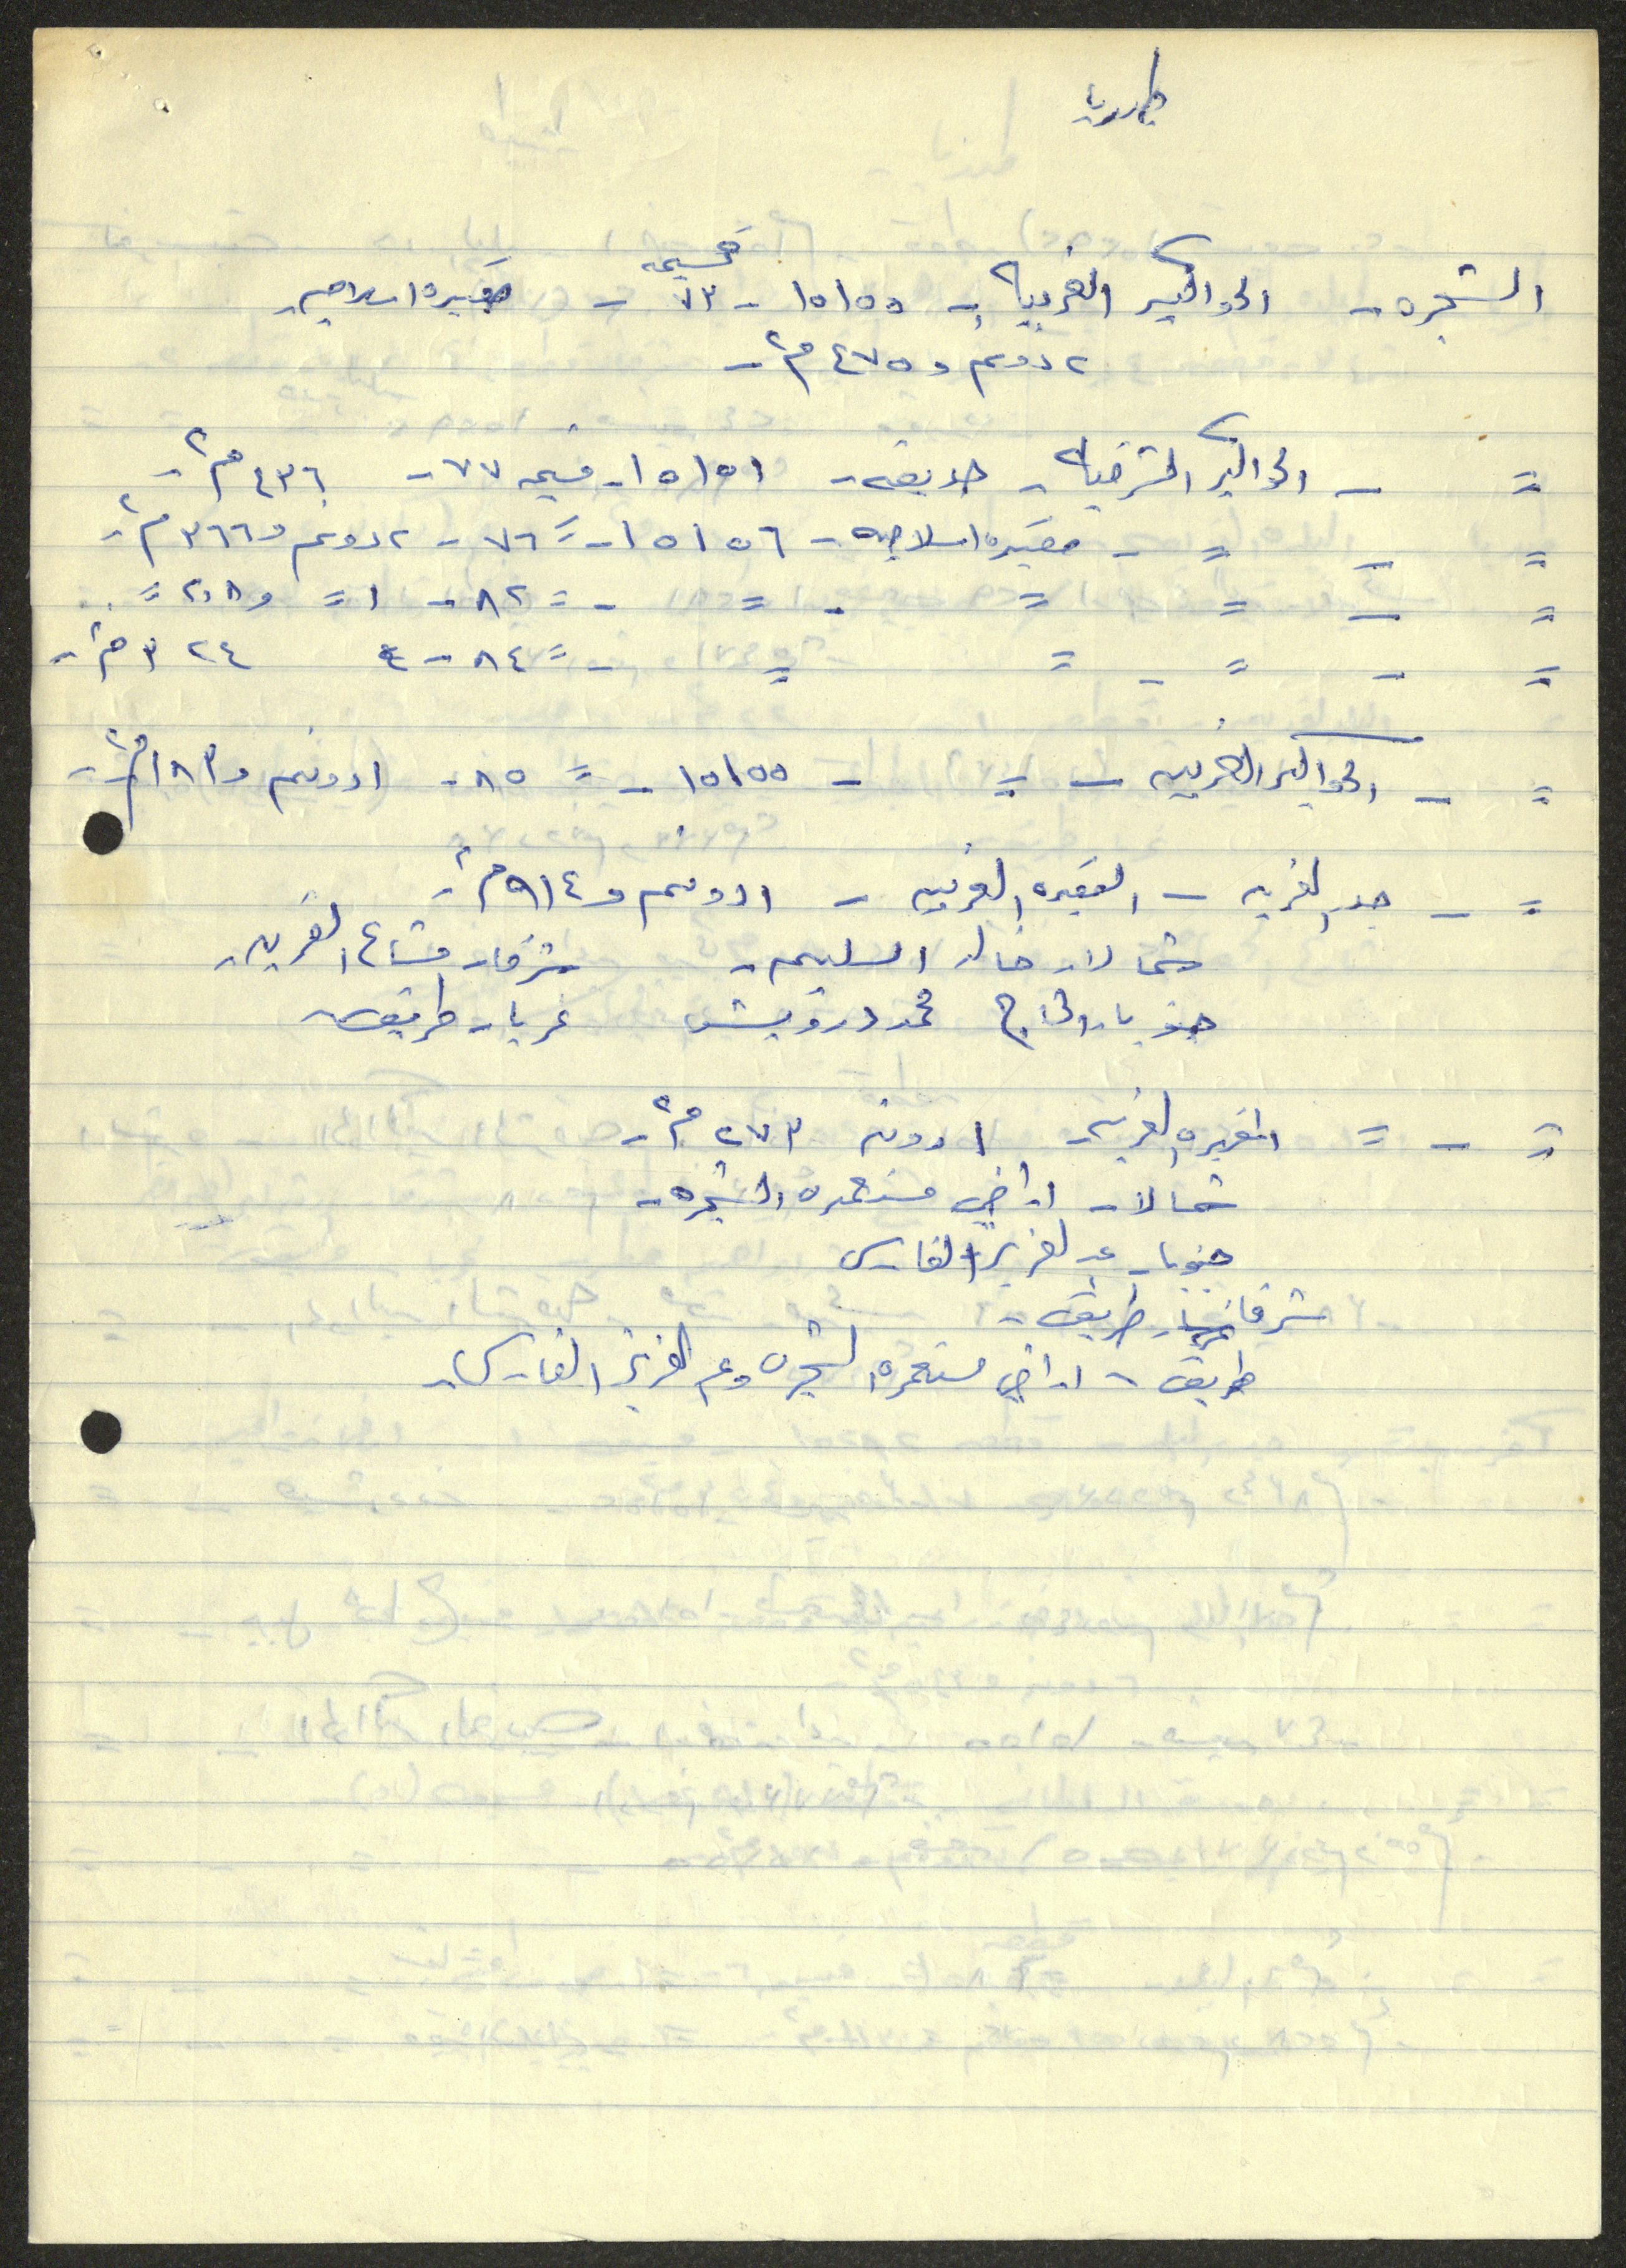 طبريا
الشجره - الحواكير الغربيه - ١٥١٥٥ - قسيمه ٧٣ - مقبره اسلاميه
٢ دونم و ٤٧٥ م٢ -
= - الحواكير الشرقيه - طريق - ١٥١٥١ - قسيمه ٧٧ - ٤٣٦ م٢ -
= - = - مقبره اسلاميه - ١٥١٥٦ - = ٧٦ - ٢ دونم و ٣٦٦ م٢ -
= - = = - = - = ٨٢ - ١ = و ٢٠٨ =
= - = - = = - = ٨٤ - ٣٢٤ م٢ -
= - الحواكير الغربيه - = - ١٥١٥٥ - = ٨٥ - ١ دونم و ١٨٣ م٢ -
= - جدر القريه - المقبره الغربيه - ١ دونم و ٩١٤ م٢ -
شمالا - خالد السليم - شرقا - مشاع القريه -
جنوبا - الحاج محمد درويش غربا - طريق
= - = المقبره الغربيه ١ دونم ٢٧٣ م٢ -
شمالا - اراضي مستعمره الشجره -
جنوبا - عبد العزيز الفارس
شرقا - طريق -
طريق - اراضي مستعمره الشجره وعبد العزيز الفارس -